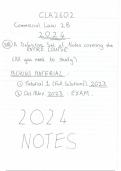 CLA2602
Commercial Law 2B
2024
A Definitive Set of Notes covering the
ENTIRE COURSE
(All you need to study)
BONUS MATERIAL:
① Tutorial 1 (Full Solutions) 2023
② Oct/Nov 2023 EXAM.
2024
NOTES